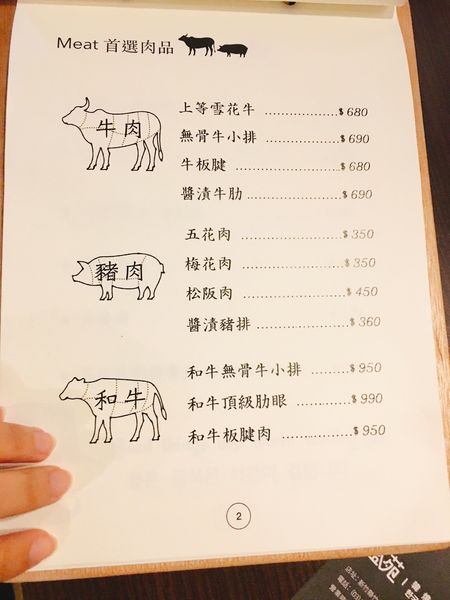 Meat 首選肉品
牛肉
上等雪花牛 ..................$ 680
無骨牛小排 ..................$ 690
牛板腱 ..........................$ 680
醬漬牛肋 ......................$ 690
豬肉
五花肉 ........................$ 350
梅花肉 ........................$ 350
松阪肉 ........................$ 450
醬漬豬排 .....................$ 360
和牛
和牛無骨牛小排 .........$ 950
和牛頂級肋眼 ............$ 990
和牛板腱肉 ................$ 950
2
苑